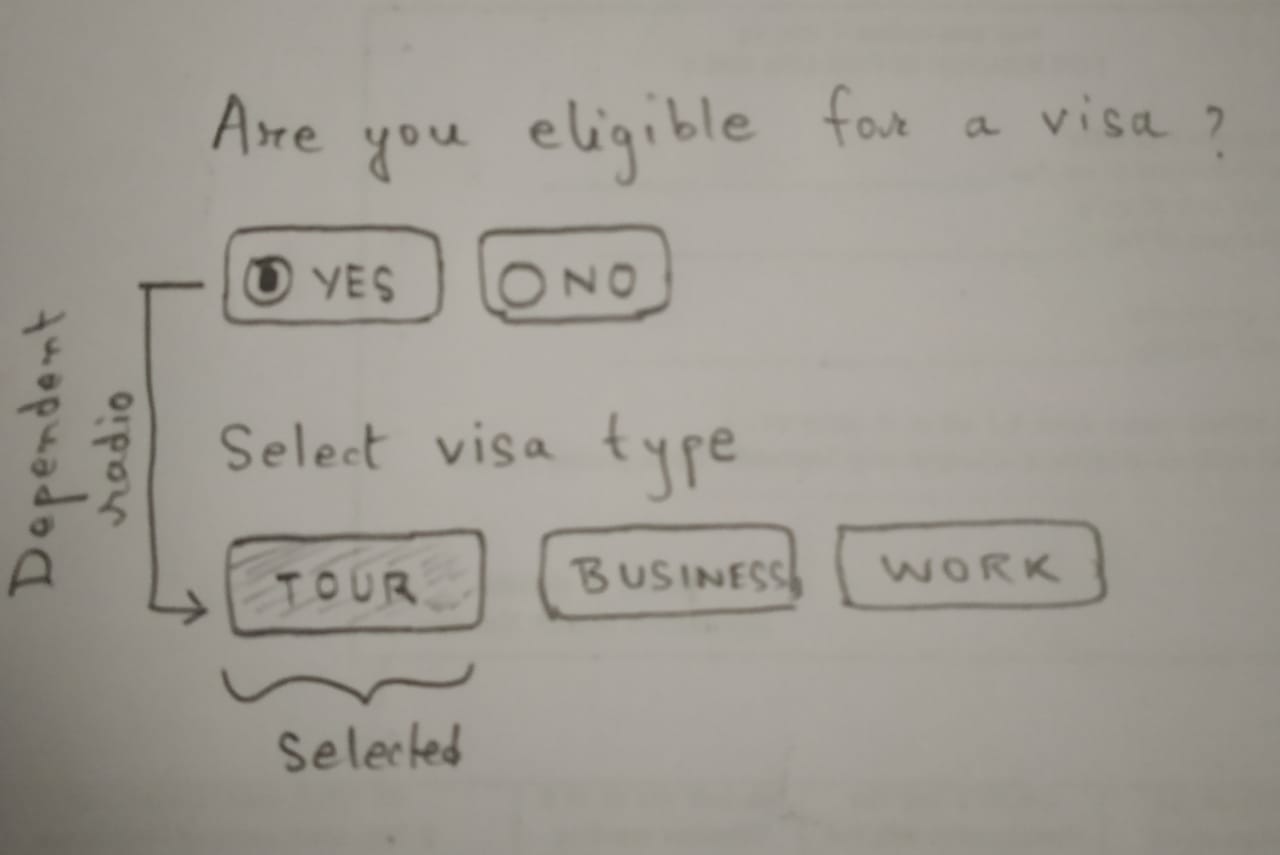 Are you eligible for a visa?
YES NO
Dependent
radio
Select visa type
TOUR BUSINESS WORK
Selected